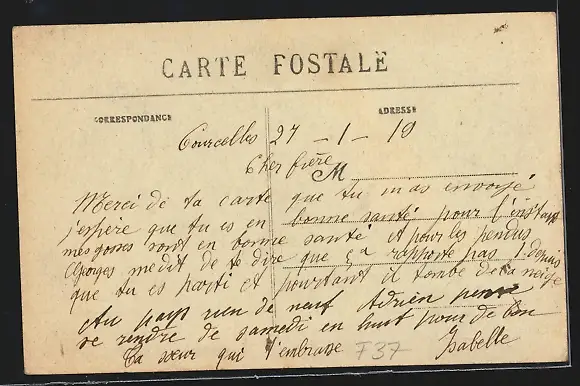 CARTE POSTALE
CORRESPONDANCE
ADRESSE
Courcelles 27 - 1 - 19
Cher frère
M
Merci de ta carte que tu m'as envoyé
j'espère que tu es en bonne santé pour l'instant
mes gosses sont en bonne santé et pour les
Georges me dit de te dire que ça rapporte pas depuis
que tu es parti et pourtant il tombe de la neige
Au pays rien de neuf Adrien pense
se rendre de samedi en huit pour de bon
Ta sœur qui t'embrasse
Isabelle
F37